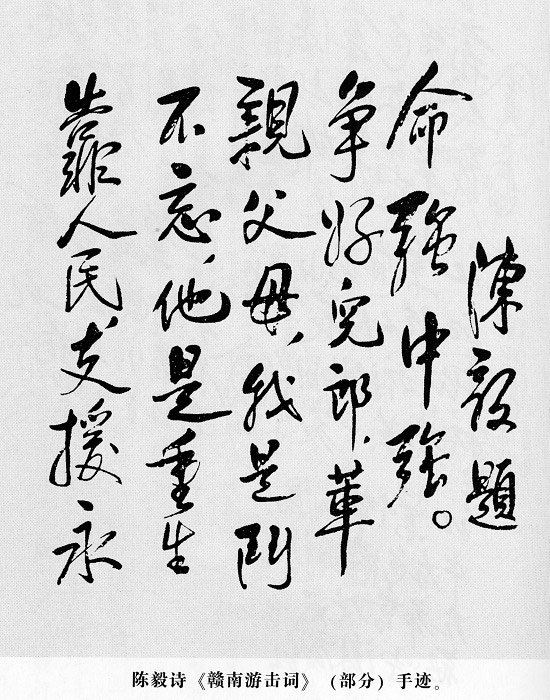 靠人民,支援永
不忘,他是重生
親父母,我是鬥
争好兒郎,革
命強中強。
陳毅題
陈毅诗《赣南游击词》(部分)手迹。